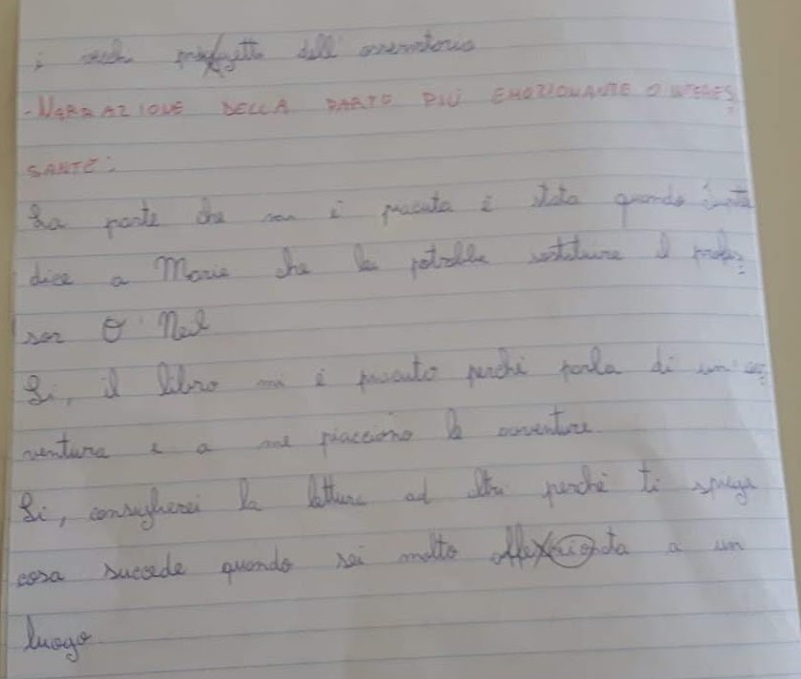 i vecchi progetti dell'osservatorio
- NARRAZIONE DELLA PARTE PIÙ EMOZIONANTE O INTERES
SANTE:
La parte che non è piaciuta è stata quando
dice a Marie che la potrebbe sostituire il profes
sor O'Neil
Si, il libro mi è piaciuto perché parla di un'av
ventura e a me piacciono le avventure.
Si, consiglierei la lettura ad altri perché ti spiega
cosa succede quando sei molto affezionata a un
luogo